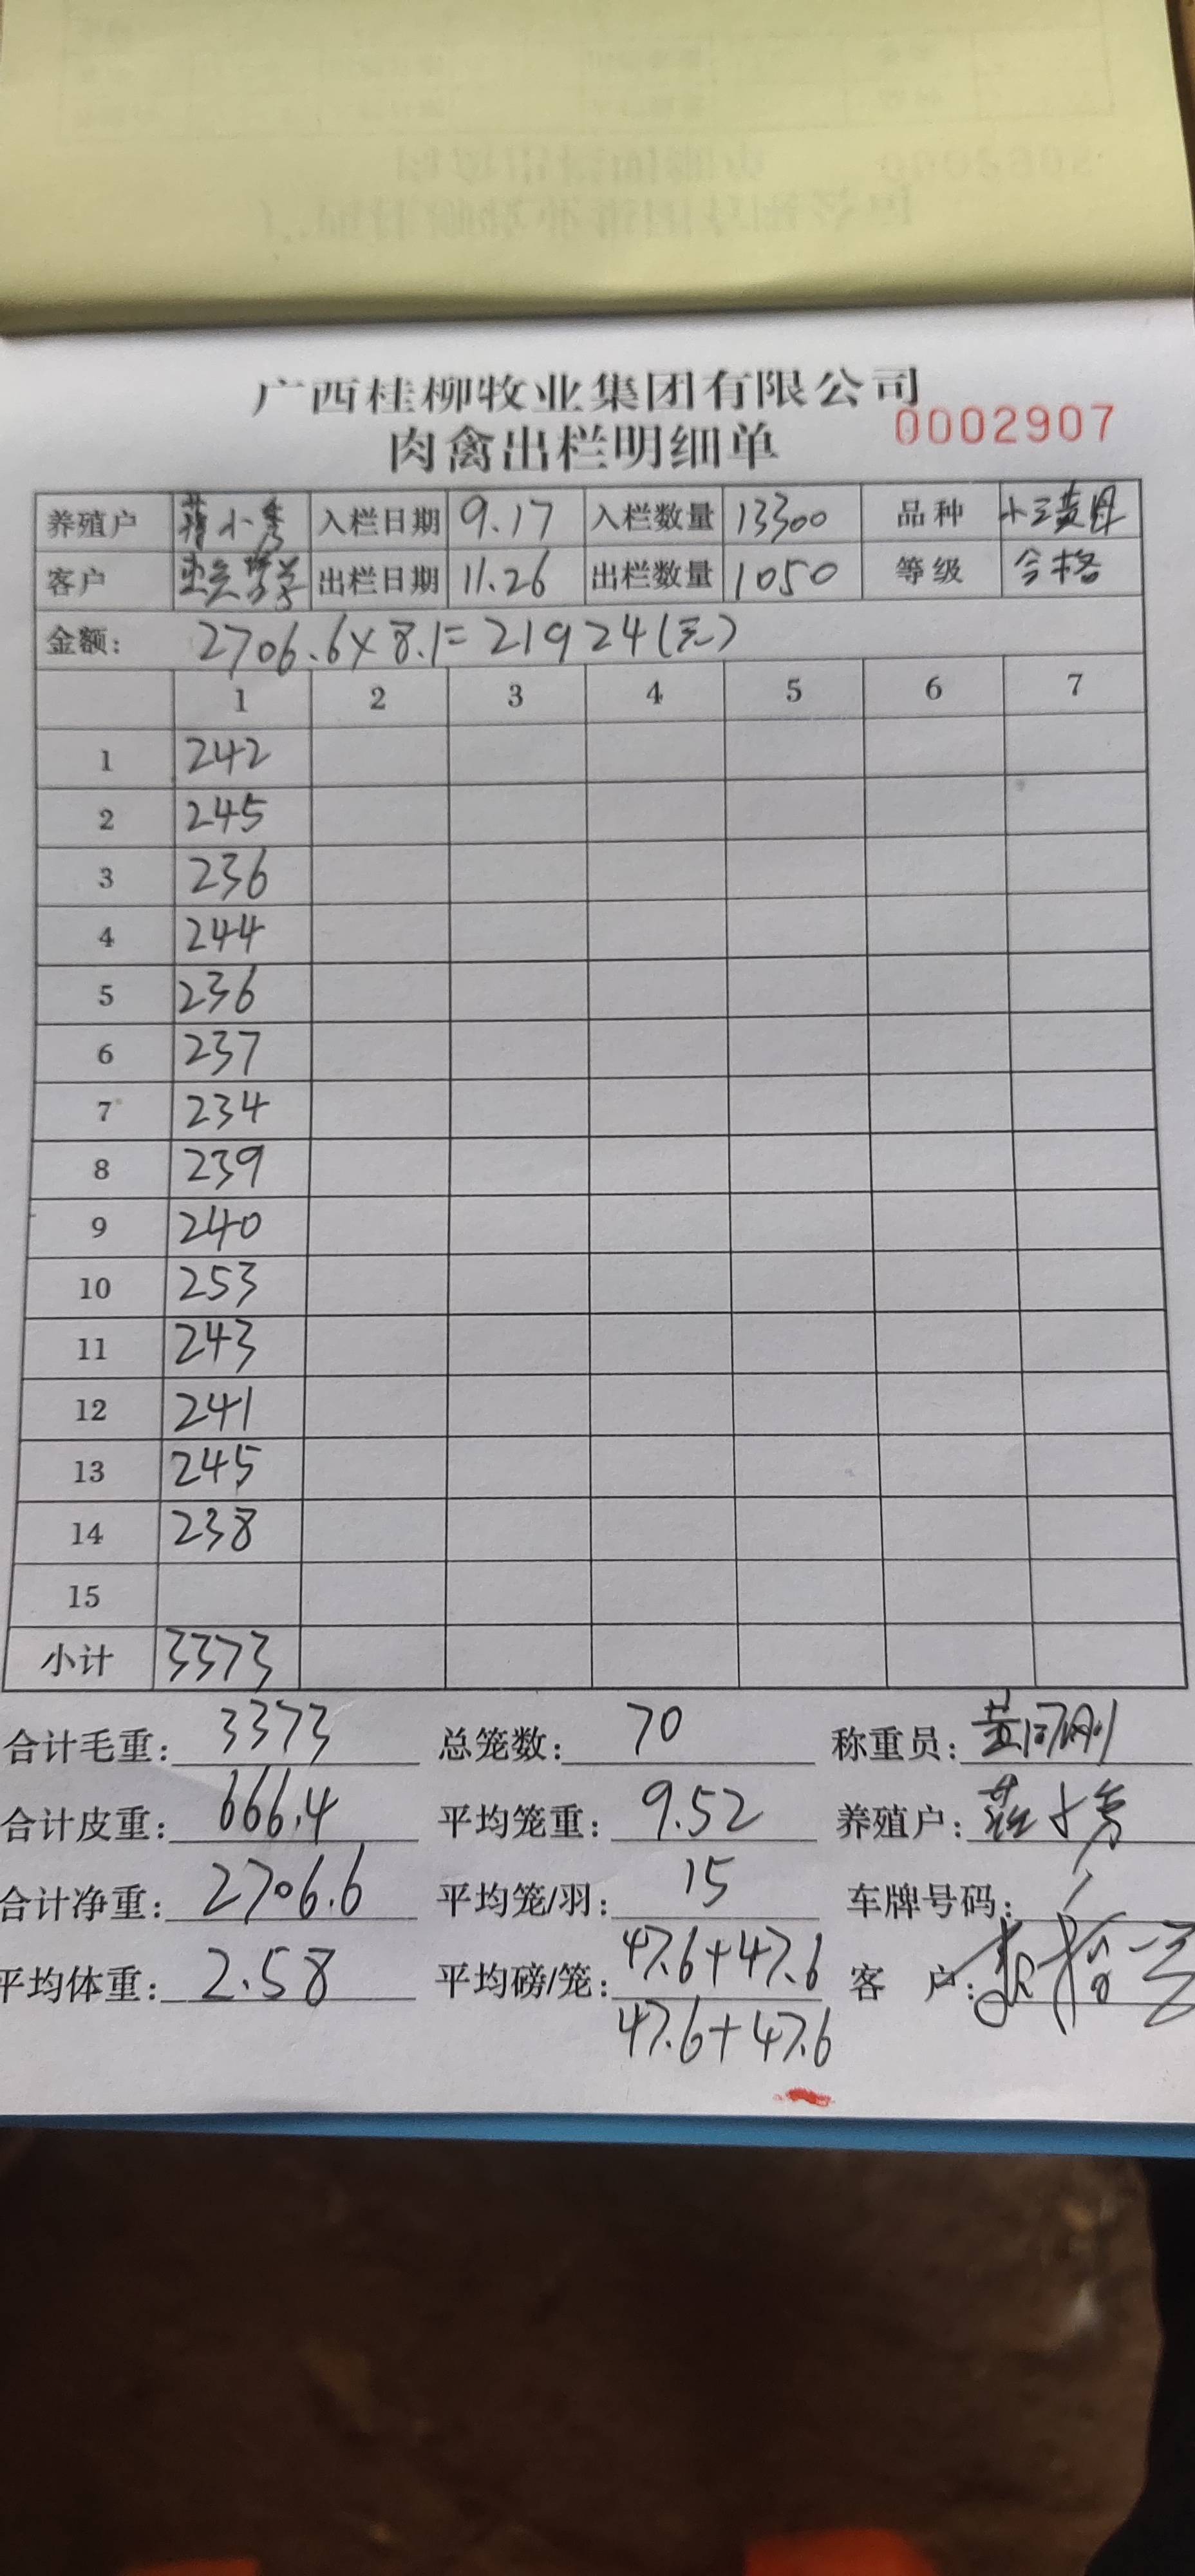 广西桂柳牧业集团有限公司
肉禽出栏明细单 0002907
养殖户 小 入栏日期 9.17 入栏数量 13300 品种 小三黄母
客户 出栏日期 11.26 出栏数量 1050 等级 合格
金额: 2706.6×8.1=21924(元)
1 2 3 4 5 6 7
1 242
2 245
3 236
4 244
5 236
6 237
7 234
8 239
9 240
10 253
11 243
12 241
13 245
14 238
15
小计 3373
合计毛重: 3373 总笼数: 70 称重员: 黄
合计皮重: 666.4 平均笼重: 9.52 养殖户:
合计净重: 2706.6 平均笼/羽: 15 车牌号码: /
平均体重: 2.58 平均磅/笼: 47.6+47.6 客 户:
47.6+47.6